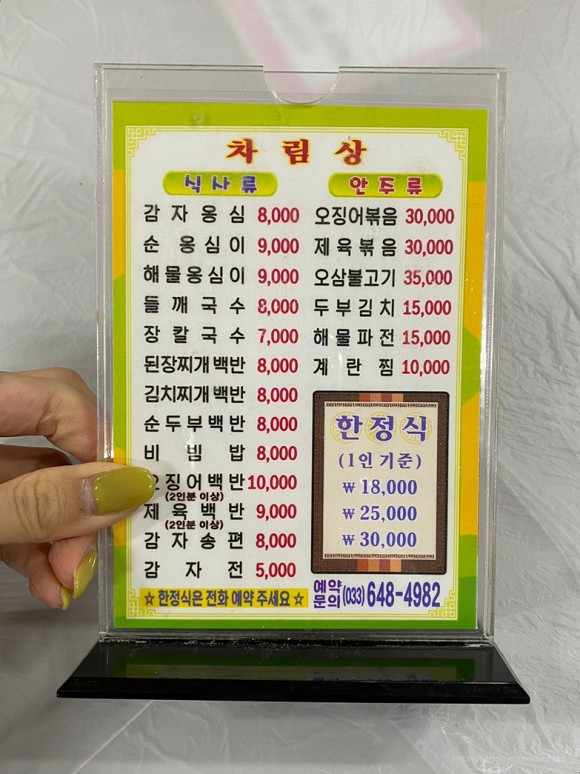 차림상
식사류
감자옹심 8,000
순 옹심이 9,000
해물옹심이 9,000
들깨국수 8,000
장칼국수 7,000
된장찌개백반 8,000
김치찌개백반 8,000
순두부백반 8,000
비빔밥 8,000
오징어백반 10,000
(2인분 이상)
제육백반 9,000
(2인분 이상)
감자송편 8,000
감자전 5,000
안주류
오징어볶음 30,000
제육볶음 30,000
오삼불고기 35,000
두부김치 15,000
해물파전 15,000
계란찜 10,000
한정식
(1인 기준)
₩ 18,000
₩ 25,000
₩ 30,000
☆ 한정식은 전화 예약 주세요 ☆
예약문의 (033) 648-4982